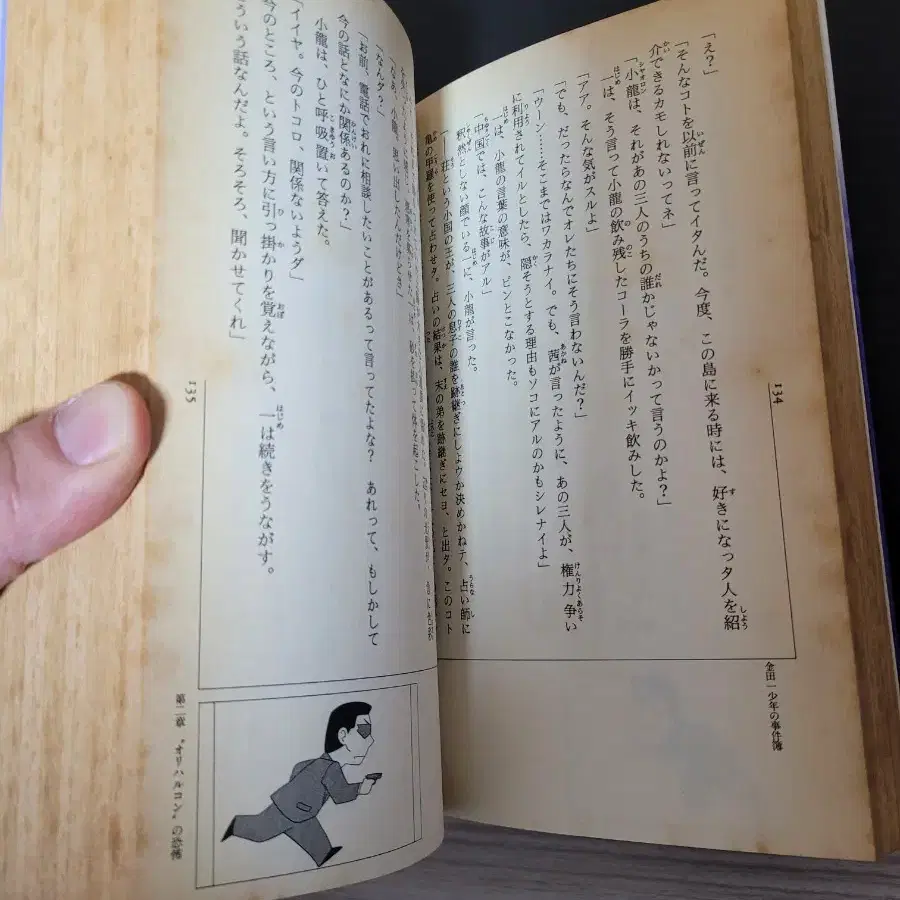 「え？」
「そんなコトを以前に言ってイタんだ。今度、この島に来る時には、好きになっタ人を紹
介できるカモしれないってネ」
「小龍は、それがあの三人のうちの誰かじゃないかって言うのかよ？」
一は、そう言って小龍の飲み残したコーラを勝手にイッキ飲みした。
「アア。そんな気がスルよ」
「でも、だったらなんでオレたちにそう言わないんだ？」
「ウーン……そこまではワカラナイ。でも、茜が言ったように、あの三人が、権力争い
に利用されてイルとしたら、隠そうとする理由もソコにアルのかもシレナイよ」
一は、小龍の言葉の意味が、ピンとこなかった。
釈然としない顔でいる一に、小龍が言った。
「中国では、こんな故事がアル」
――荘という小国の王が、三人の息子の誰を跡継ぎにしよウか決めかねテ、占い師に
亀の甲羅を使って占わせタ。占いの結果は、末の弟を跡継ぎにセヨ、と出タ。このコト
134
金田一少年の事件簿
「なあ、小龍、思い出したんだけどさ」
「なんダ？」
「お前、電話でおれに相談したいことがあるって言ってたよな？　あれって、もしかして
今の話となにか関係あるのか？」
小龍は、ひと呼吸置いて答えた。
「イイヤ。今のトコロ、関係ないようダ」
今のところ、という言い方に引っ掛かりを覚えながら、一は続きをうながす。
そういう話なんだよ。そろそろ、聞かせてくれ」
135
第二章　“オリハルコン”の恐怖